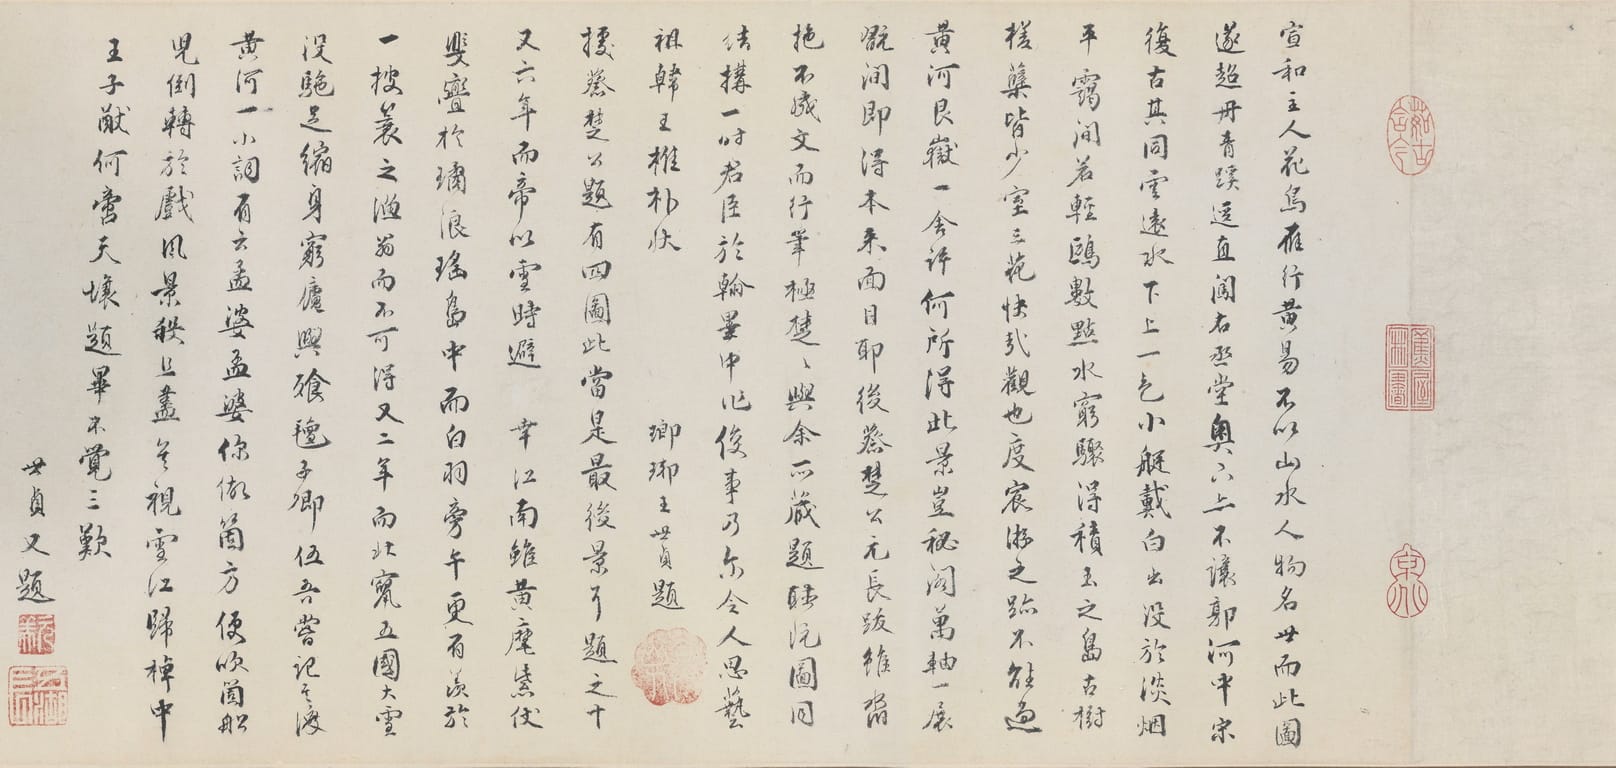 宣和主人花鳥雁行黃易不以山水人物名世而此圖
遂超丹青蹊逕直闖右丞堂奧下亦不讓郭河中宋
復古其同雲遠水下上一色小艇戴白出沒於淡烟
平靄間若輕鷗數點水窮驟得積玉之島古樹
槎蘖皆少室三花快哉觀也度宸游之跡不能過
黃河艮嶽一舍許何所得此景豈秘閣萬軸一展
翫間即得本來面目耶後蔡楚公元長跋雖
拖不成文而行筆極楚楚與余所藏題聽阮圖同
結搆一時君臣於翰墨中作俊事乃爾令人思藝
祖韓王椎朴狀
瑯琊王世貞題
據蔡楚公題有四圖此當是最後景耳題之十
又六年而帝以雪時避 幸江南雖黃麾紫仗
斐亹於璚浪瑤島中而白羽旁午更有羨於
一披蓑之漁翁而不可得又二年而北竄五國大雪
沒駝足縮身窮廬與飱氊子卿伍吾嘗記其渡
黃河一小詞有云孟婆孟婆你做箇方便吹箇船
兒倒轉於戲風景殺且盡矣視雪江歸棹中
王子猷何啻天壤題畢不覺三歎
世貞又題